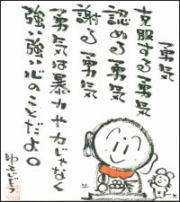 勇気
克服する勇気
認める勇気
謝る勇気
勇気は暴力や力じゃなく
強い強い心のことだよ。